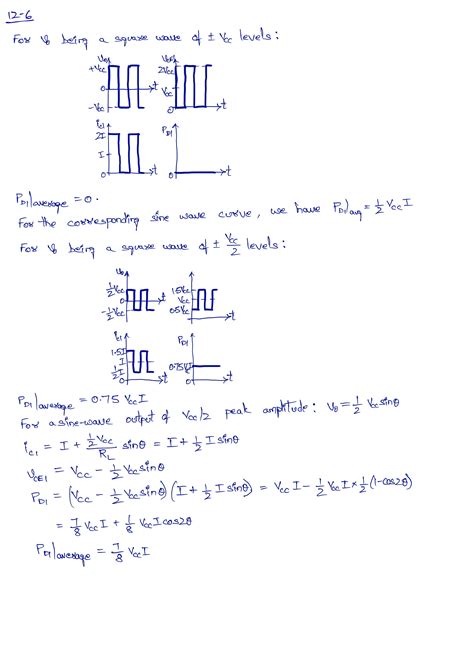 12-6
For vo being a square wave of ± Vcc levels:
vo
+Vcc
0
-Vcc
t
2Vcc
Vcc
0
t
ic1
2I
I
0
t
PD1
0
t
PD1|average = 0.
For the corresponding sine wave curve, we have PD1|avg = 1/2 Vcc I
For vo being a square wave of ± Vcc/2 levels:
vo
1/2 Vcc
0
-1/2 Vcc
t
1.5Vcc
Vcc
0.5Vcc
t
ic1
1.5I
I
1/2 I
0
t
PD1
0.75VccI
0
t
PD1|average = 0.75 Vcc I
For a sine-wave output of Vcc/2 peak amplitude: vo = 1/2 Vcc sinθ
ic1 = I + (1/2 Vcc)/RL sinθ = I + 1/2 I sinθ
vCE1 = Vcc - 1/2 Vcc sinθ
PD1 = (Vcc - 1/2 Vcc sinθ)(I + 1/2 I sinθ) = Vcc I - 1/2 Vcc I × 1/2 (1-cos2θ)
= 7/8 Vcc I + 1/8 Vcc I cos2θ
PD1|average = 7/8 Vcc I